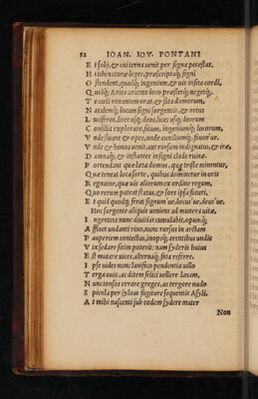 52 IOAN. IOV. PONTANI
E t solis, & cui terna venit per signa potestas,
H i tibi naturæ leges, præscriptaq; signi
O stendent, quodq; ingenium, & vis insita cordi,
Q uidq; Aries oriente loco præstetq; negetq;
V t cœli rimantem oras, & sita domorum,
N atalemq; locum signi surgentis, & ortus
L uciferos, licet usq; deos, licet usq; deorum
C onsilia explorare, situm, ingeniumq; locorum,
V nde fluant & opes, unde auxiliumq; fauorue.
V nde & honos veniat, aut rursum indignatio, & iræ,
D amnaq; & instantes insigni clade ruinæ.
P ortendant quæ læta domus, quæq; triste minentur,
Q uæ teneat loca sorte, quibus dominetur in oris
R egnator, quæ vis aliorum ex ordine regum,
Q uo rerum pateat status, & spes ipsa futuri,
E t quid quodq; ferat signum'ue, locus'ue, deus'ue.
Hoc surgente aliquis veniens ad munera vitæ,
I ngentes nunc diuitias cumulabit, opumq;
A ffluet undanti riuo, nunc rursus in arctam
P auperiem coniectus, inopsq; errentibus undis
V ix sedare sitim poterit: nam syderis huius
E st mutare vices, alternaq; fila referre.
I pse vides nunc lanifico pendentia villo
T erga ouis, ac ditem felici vellere lanam,
N unc tonsos errare greges, ac tergore nudo
S picula per syluas fugitare sequentis Asyli.
A t mihi nascenti sub eodem sydere mater
Non